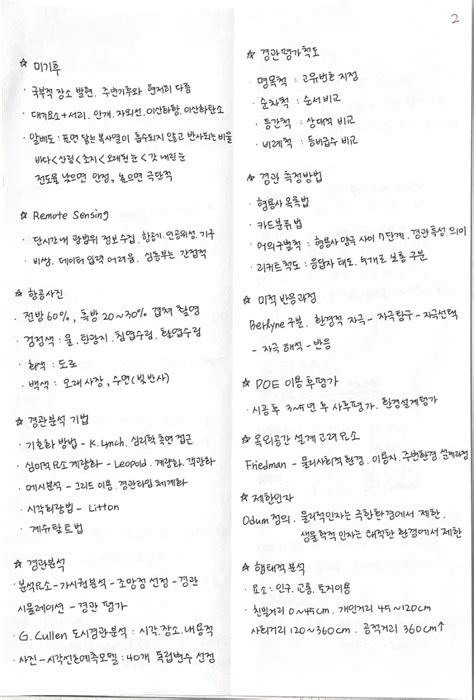 2
☆ 미기후
· 국부적 장소 발현. 주변기후와 현저히 다름
· 대기요소 + 서리. 안개. 자외선. 이산화황. 이산화탄소
· 알베도 : 표면 닿는 복사열이 흡수되지 않고 반사되는 비율
바다 < 산림 < 초지 < 오래된 눈 < 갓 내린 눈
전도율 낮으면 안정, 높으면 극단적
☆ Remote Sensing
· 단시간내 광범위 정보수집. 항공기. 인공위성. 기구
· 비쌈. 데이터 입력 어려움. 심층부는 간접적
☆ 항공사진
· 전방 60%, 측방 20~30% 겹쳐 촬영
· 검정색 : 물. 탄광지. 침엽수림. 활엽수림
· 회색 : 도로
· 백색 : 모래사장, 수면(빛반사)
☆ 경관분석 기법
· 기호화 방법 - K. Lynch. 심리학 측면 접근
· 심미적 요소 계량화 - Leopold. 계량화. 객관화
· 메시분석 - 그리드 이용. 경관타입 체계화
· 시각회랑법 - Litton
· 게슈탈트법
☆ 경관분석
· 분석요소 - 가시권분석 - 조망점 선정 - 경관
시뮬레이션 - 경관 평가
· G. Cullen 도시경관분석 : 시각. 장소. 내용적
· 사진 - 시각선호예측모델 : 40개 독립변수 선정
☆ 경관평가척도
· 명목척 : 고유번호 지정
· 순차척 : 순서 비교
· 등간척 : 상대적 비교
· 비례척 : 등비급수 비교
☆ 경관 측정방법
· 형용사 목록법
· 카드분류법
· 어의구별척 : 형용사 양극 사이 7단계. 경관특성 의미
· 리커트척도 : 응답자 태도. 5개로 보통 구분
☆ 미적 반응과정
Berlyne 구분. 환경적 자극 - 자극탐구 - 자극선택
- 자극 해석 - 반응
☆ POE 이용후평가
· 시공 후 3~5년 후 사후평가. 환경설계평가
☆ 옥외공간 설계 고려 요소
Friedman - 물리사회적 환경. 이용자. 주변환경. 설계과정
☆ 제한인자
Odum 정의. 물리적인자는 극한환경에서 제한.
생물학적 인자는 쾌적한 환경에서 제한
☆ 행태적분석
· 요소 : 인구. 교통. 토지이용
· 친밀거리 0~45cm. 개인거리 45~120cm
사회거리 120~360cm. 공적거리 360cm↑